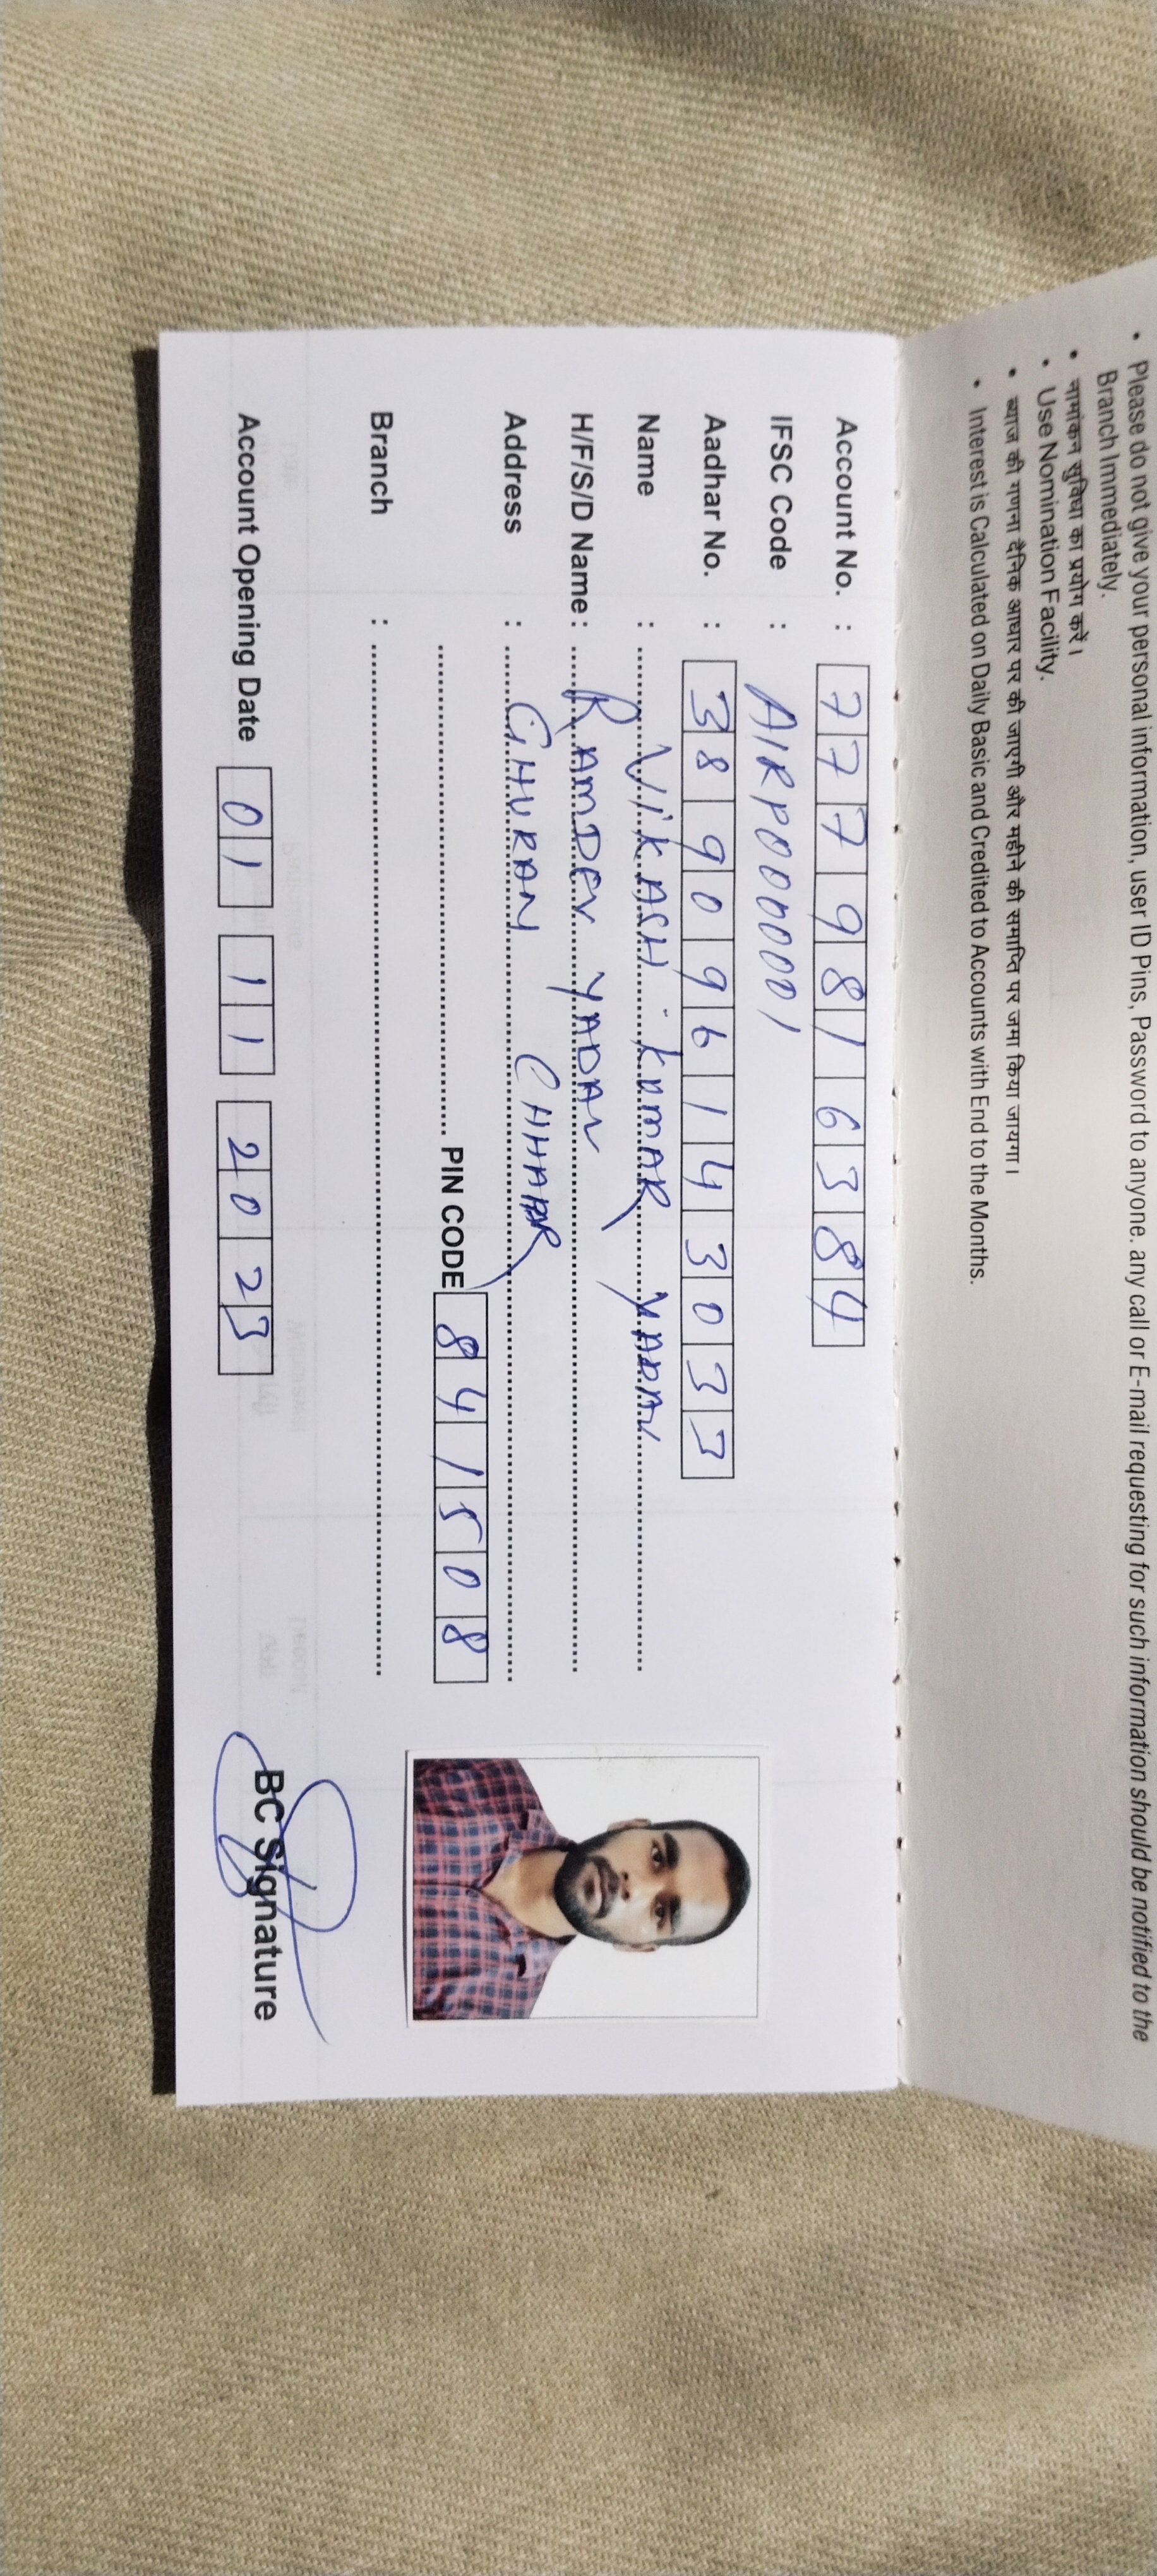 • Please do not give your personal information, user ID Pins, Password to anyone. any call or E-mail requesting for such information should be notified to the
Branch Immediately.
• नामांकन सुविधा का प्रयोग करें।
• Use Nomination Facility.
• ब्याज की गणना दैनिक आधार पर की जाएगी और महीने की समाप्ति पर जमा किया जायगा।
• Interest is Calculated on Daily Basic and Credited to Accounts with End to the Months.
Account No. : 7779816384
IFSC Code : AIRP0000001
Aadhar No. : 389096143033
Name : VIKASH KUMAR YADAV
H/F/S/D Name : RAMDEV YADAV
Address : GHURAN CHHAPAR
PIN CODE 841508
Branch :
Account Opening Date 01 11 2023
BC Signature